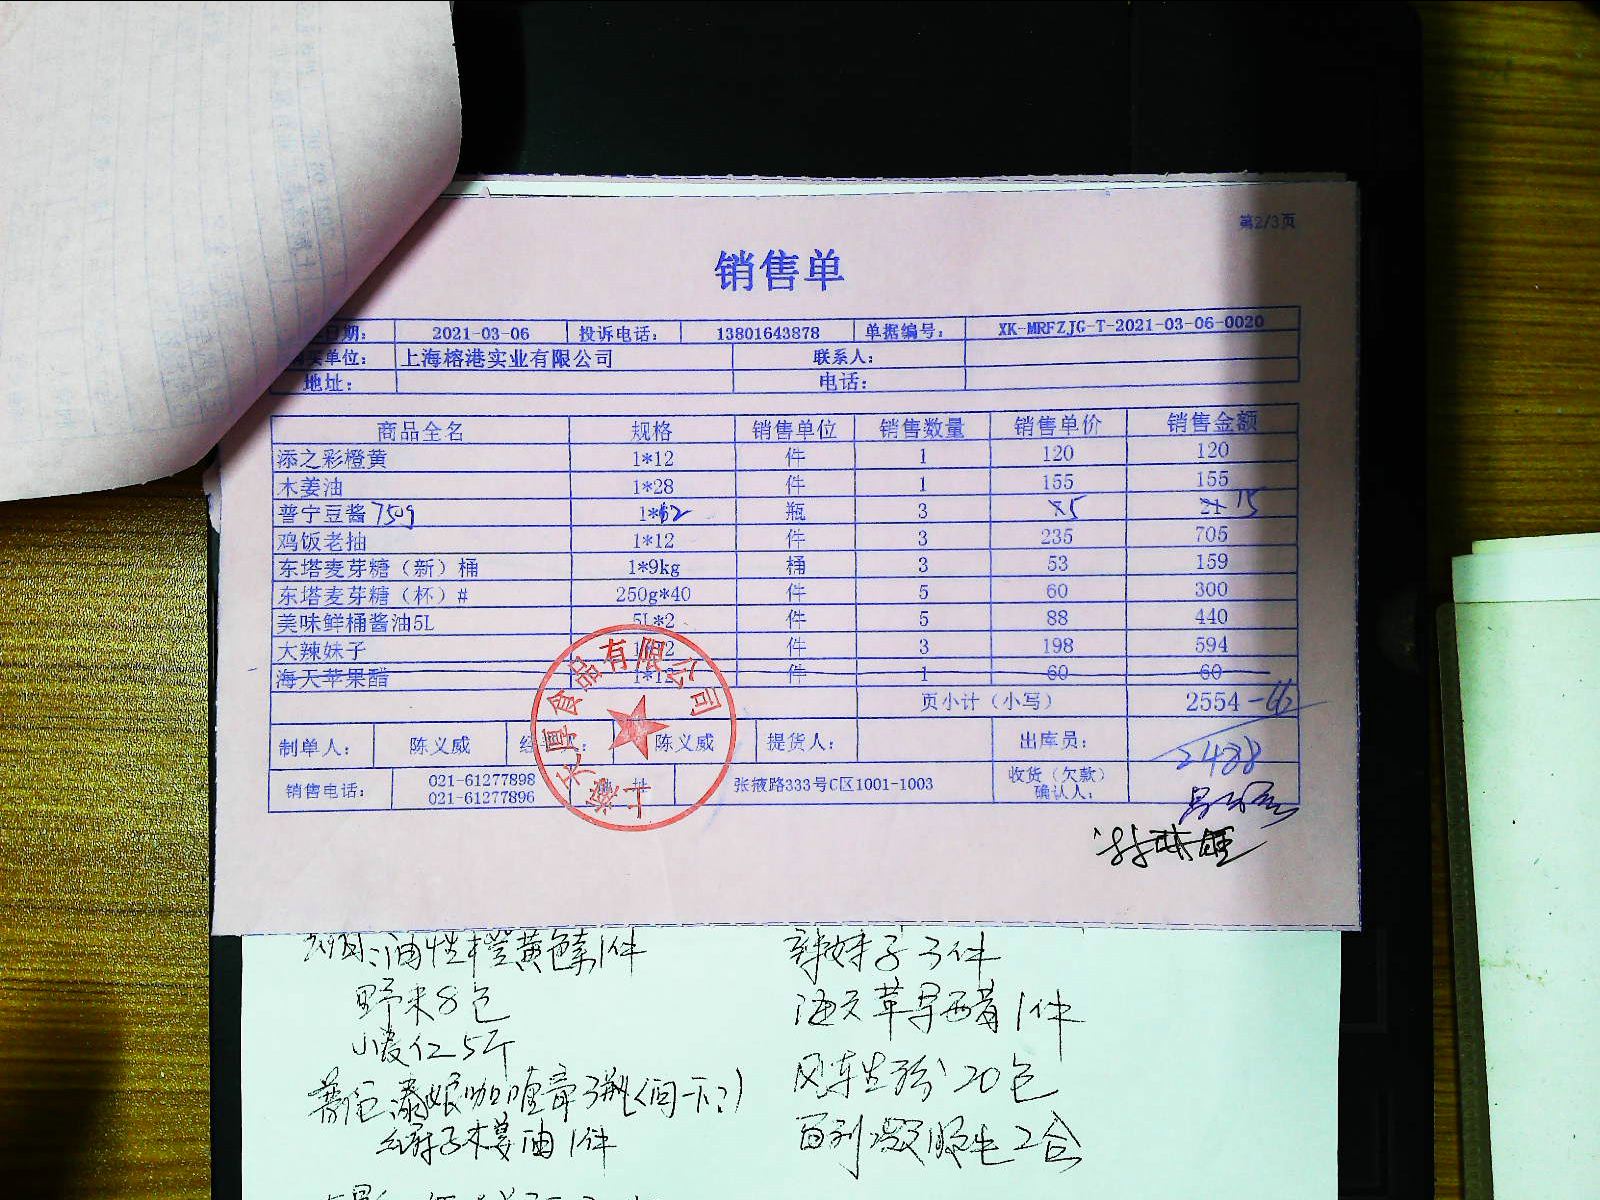 第2/3页
销售单
日期： 2021-03-06 投诉电话： 13801643878 单据编号： XK-MRFZJG-T-2021-03-06-0020
单位： 上海榕港实业有限公司 联系人：
地址： 电话：
商品全名 规格 销售单位 销售数量 销售单价 销售金额
添之彩橙黄 1*12 件 1 120 120
木姜油 1*28 件 1 155 155
普宁豆酱 750g 瓶 3 5 21 15
鸡饭老抽 1*12 件 3 235 705
东塔麦芽糖（新）桶 1*9kg 桶 3 53 159
东塔麦芽糖（杯）# 250g*40 件 5 60 300
美味鲜桶酱油5L 5L*2 件 5 88 440
大辣妹子 件 3 198 594
海天苹果醋 1*12 件 1 60 60
页小计（小写） 2554
2488
制单人： 陈义威 陈义威 提货人： 出库员：
销售电话： 021-61277898 021-61277896 张掖路333号C区1001-1003 收货（欠款）确认人：
食品有限公司
油性橙黄色素1件 辣妹子3件
野米8包 海天苹果醋1件
5斤 风车生粉20包
咖喱 3瓶(问一下?)
木姜油1件 百利 2合